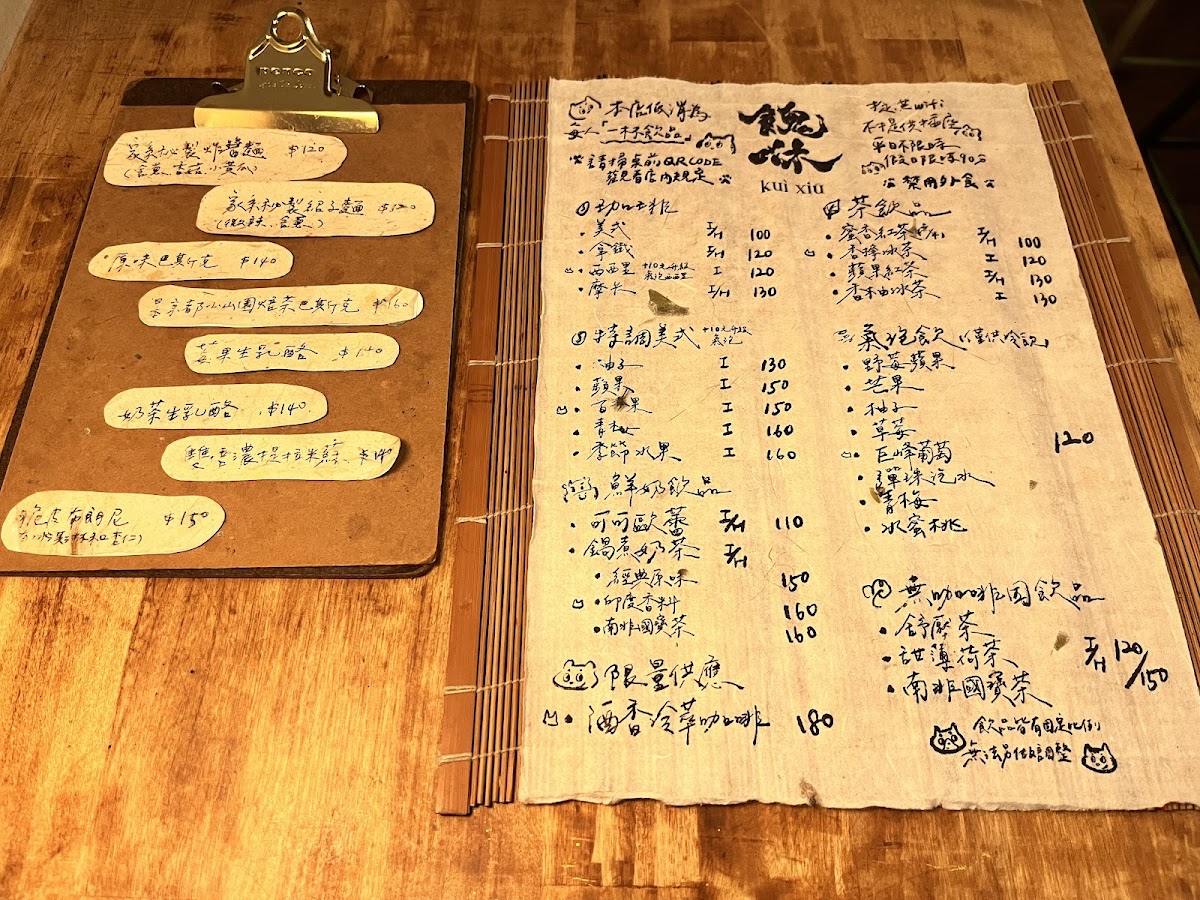 家系秘製炸醬麵 $120
家系秘製紹子麵 $120
(微辣、含蔥)
原味巴斯克 $140
京都小山園焙茶巴斯克 $160
莓果生乳酪 $140
奶茶生乳酪 $140
雙倍濃提拉米蘇 $140
脆皮布朗尼 $150
本店低消為
每人「一杯飲品」
請掃桌前QRCODE
kuì xiū
提供wifi
不提供插座
平日不限時
假日限時90分
禁用外食
咖啡
美式 I/H 100
拿鐵 I/H 120
西西里 +10元升級 I 120
氣泡西西里
摩卡 I/H 130
特調美式 +10元升級
氣泡
柚子 I 130
蘋果 I 150
百香果 I 150
青梅 I 160
季節水果 I 160
鮮奶飲品
可可歐蕾 I/H 110
鍋煮奶茶 I/H
經典原味 150
印度香料 160
南非國寶茶 160
限量供應
酒香冷萃咖啡 180
茶飲品
蜜香紅茶 I/H 100
香檸冰茶 I 120
蘋果紅茶 I/H 130
香柚冰茶 I 130
氣泡飲(僅供冷飲)
野莓蘋果
芒果
柚子
草莓
巨峰葡萄
彈珠汽水
青梅
水蜜桃
120
無咖啡因飲品
舒壓茶
甜薄荷茶
南非國寶茶
I/H 120/150
飲品皆有固定比例
無法另做調整